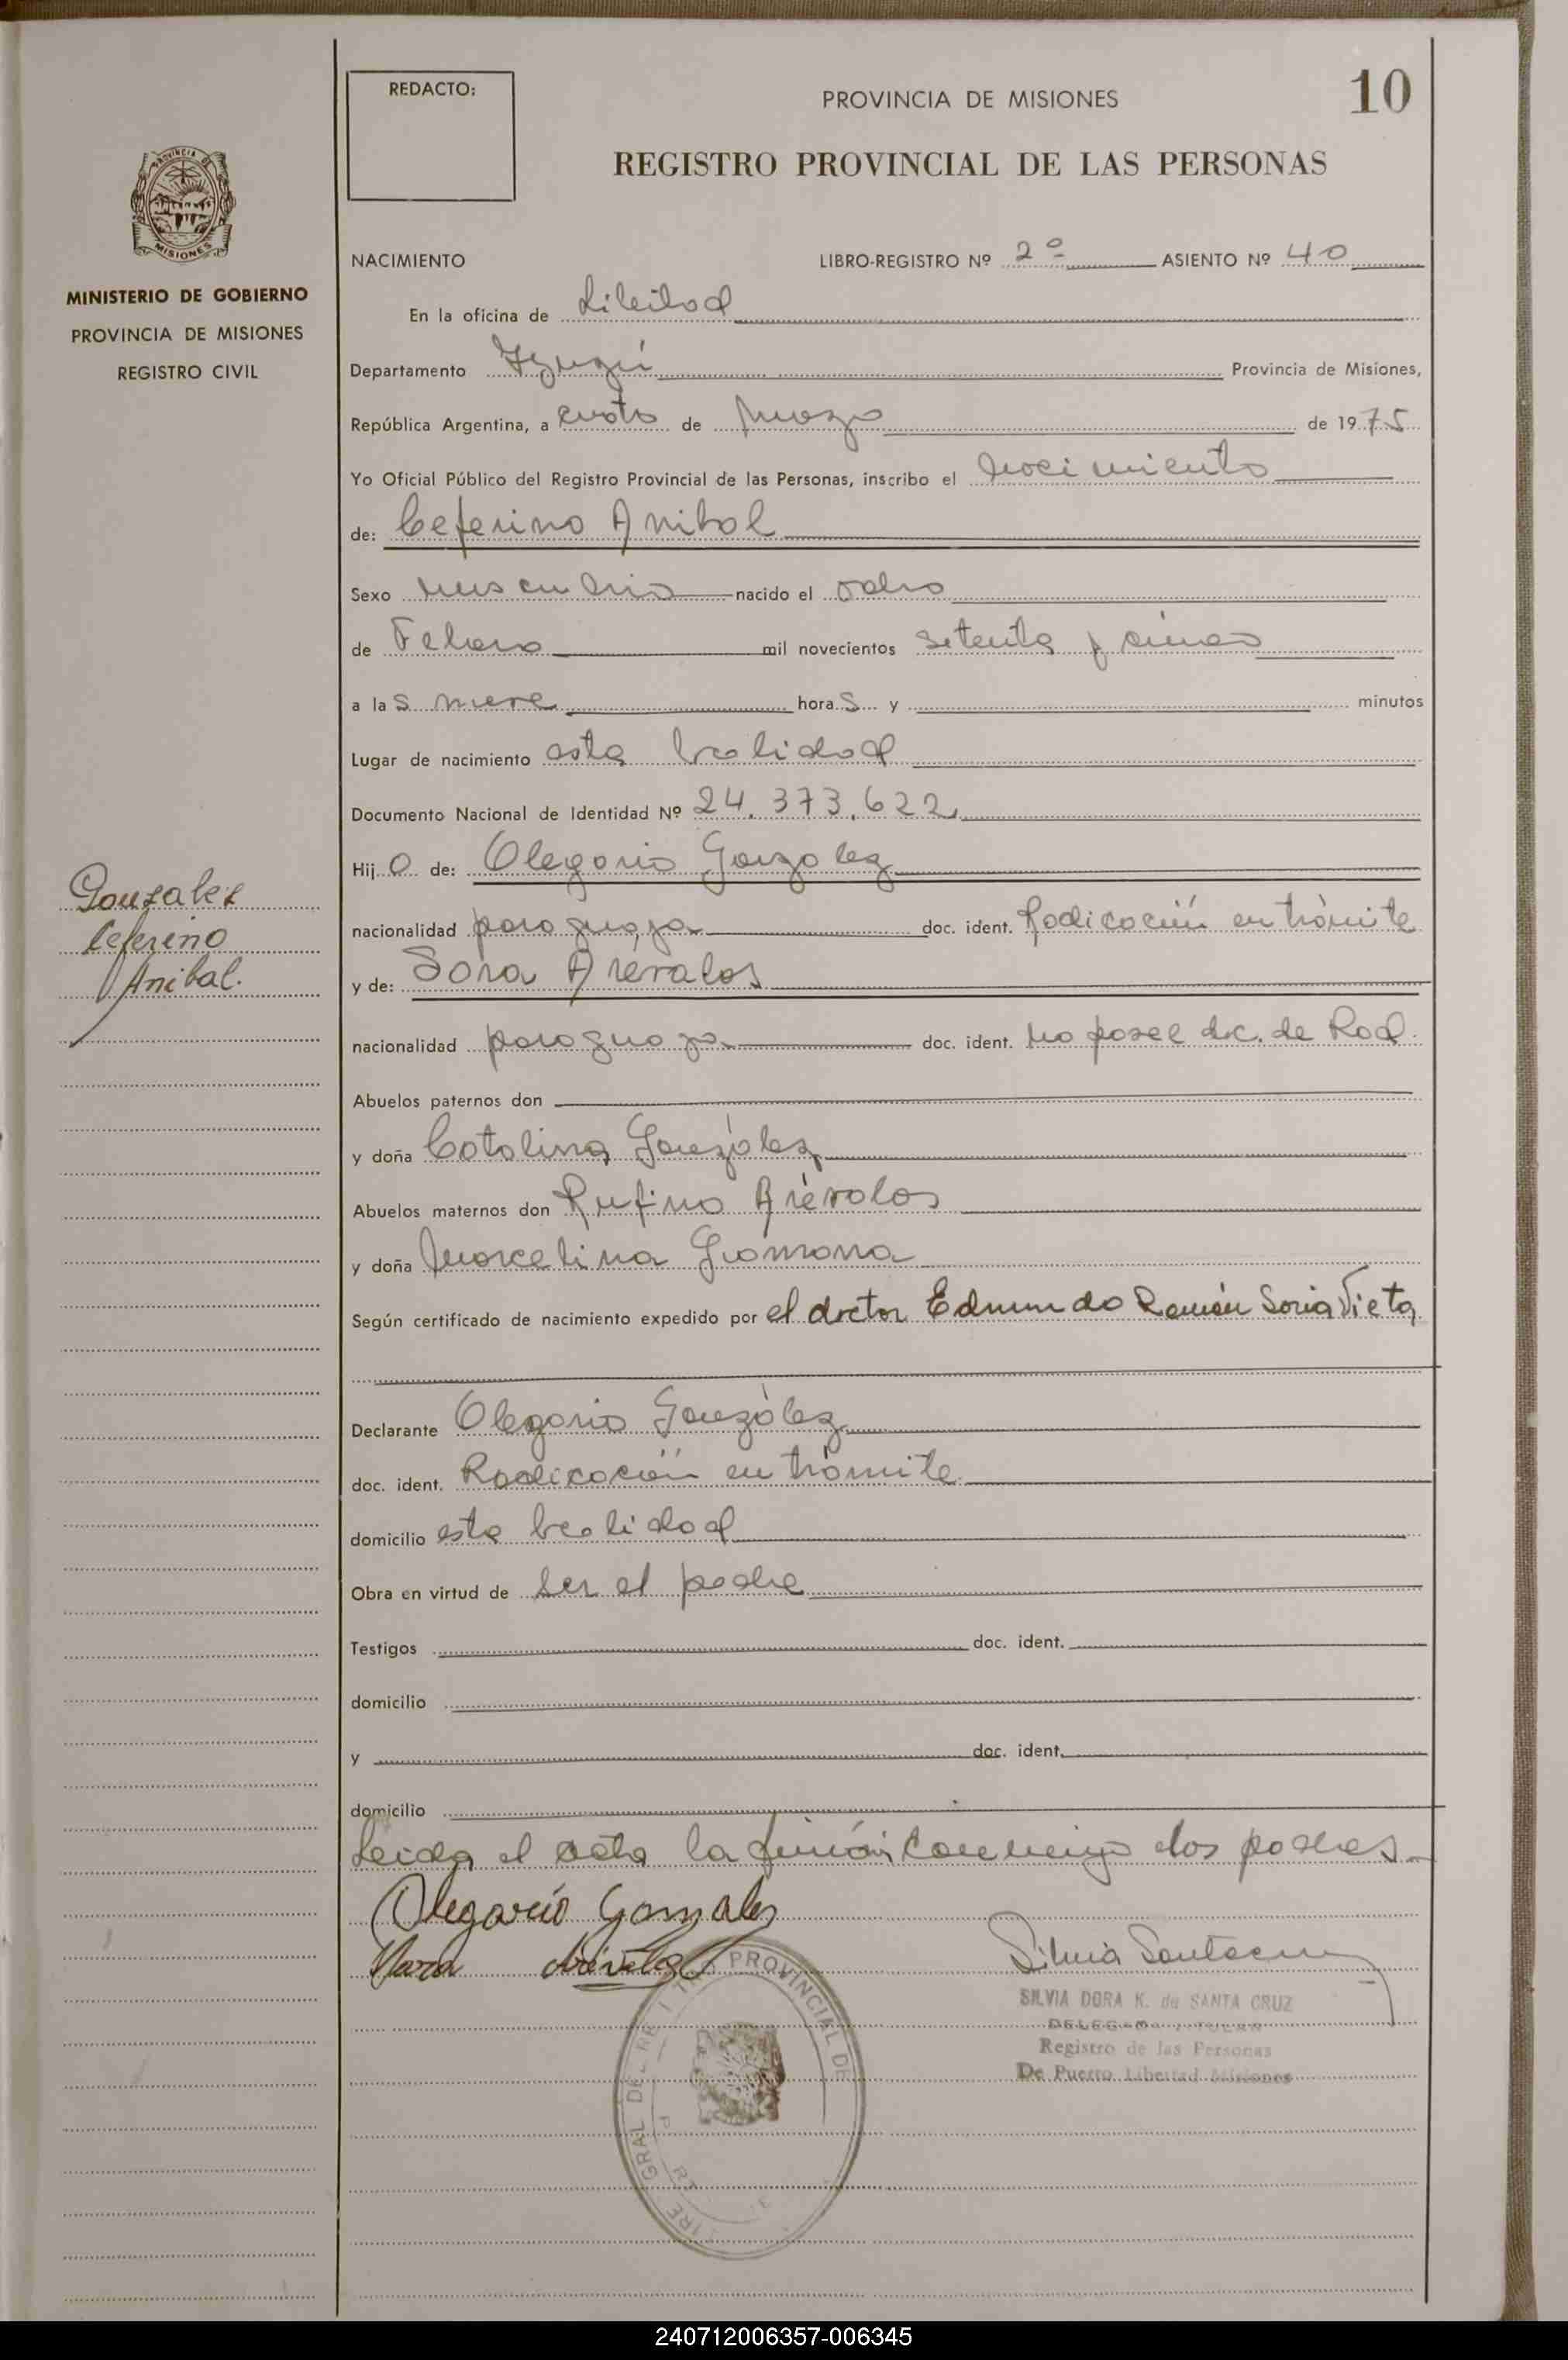 REDACTO:
PROVINCIA DE MISIONES
10
REGISTRO PROVINCIAL DE LAS PERSONAS
PROVINCIA DE
MISIONES
MINISTERIO DE GOBIERNO
PROVINCIA DE MISIONES
REGISTRO CIVIL
NACIMIENTO LIBRO-REGISTRO Nº 2º ASIENTO Nº 40
En la oficina de Libertad
Departamento Iguazú Provincia de Misiones,
República Argentina, a cuatro de marzo de 1975
Yo Oficial Público del Registro Provincial de las Personas, inscribo el nacimiento
de: Ceferino Anibal
Sexo masculino nacido el ocho
de Febrero mil novecientos setenta y cinco
a las nueve horas y minutos
Lugar de nacimiento esta localidad
Documento Nacional de Identidad Nº 24.373.622
Hijo de: Olegario González
nacionalidad paraguaya doc. ident. Radicación en trámite
y de: Sara Arévalos
nacionalidad paraguaya doc. ident. No posee doc. de Rad.
Abuelos paternos don
y doña Catalina González
Abuelos maternos don Rufino Arévalos
y doña Marcelina
Según certificado de nacimiento expedido por el doctor Edmundo Ramón Soria Vieta
Declarante Olegario González
doc. ident. Radicación en trámite
domicilio esta localidad
Obra en virtud de ser el padre
Testigos doc. ident.
domicilio
y doc. ident.
domicilio
Leida el acta la firman conmigo los padres
Olegario Gonzales
Arévalos
Silvia Santacruz
SILVIA DORA K. de SANTA CRUZ
Registro de las Personas
De Puerto Libertad Misiones
PROVINCIAL DE
GRAL DEL
Gonzalez
Ceferino
Anibal.
240712006357-006345